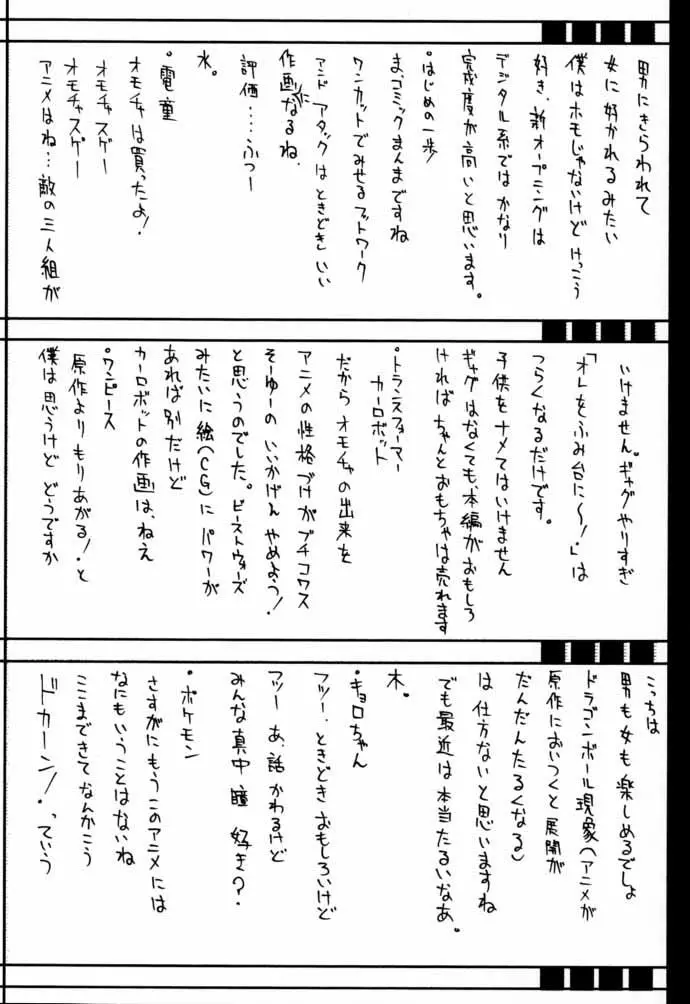 男にきらわれて
女に好かれるみたい
僕はホモじゃないけど けっこう
好き、新オープニングは
デジタル系ではかなり
完成度が高いと思います。
・はじめの一歩
ま、コミックまんまですね
ワンカットでみせるフットワーク
アンド アタックはときどきいい
作画になるね、
評価……ふつー
水。
・電童
オモチャは買ったよ!
オモチャスゲー
オモチャスゲー
アニメはね…敵の三人組が
いけません。ギャグやりすぎ
「オレをふみ台に〜!」は
つらくなるだけです。
子供をナメてはいけません
ギャグはなくても、本編がおもしろ
ければ ちゃんとおもちゃは売れます
・トランスフォーマー
カーロボット
だから オモチャの出来を
アニメの性格づけがブチコワス
そーゆーの いいかげん やめよう!
と思うのでした。ビーストウォーズ
みたいに絵(CG)に パワーが
あれば 別だけど
カーロボットの作画は、ねえ
・ワンピース
原作よりもりあがる!と
僕は思うけど どうですか
こっちは
男も女も楽しめるでしょ
ドラゴンボール現象(アニメが
原作においつくと展開が
だんだんたるくなる)
は 仕方ないと思いますね
でも最近は本当たるいなあ。
木。
・キョロちゃん
フツー、ときどき おもしろいけど
フツー あ、話 かわるけど
みんな真中 瞳 好き?
・ポケモン
さすがにもう このアニメには
なにもいうことはないね
ここまできて なんかこう
ドカーン!っていう